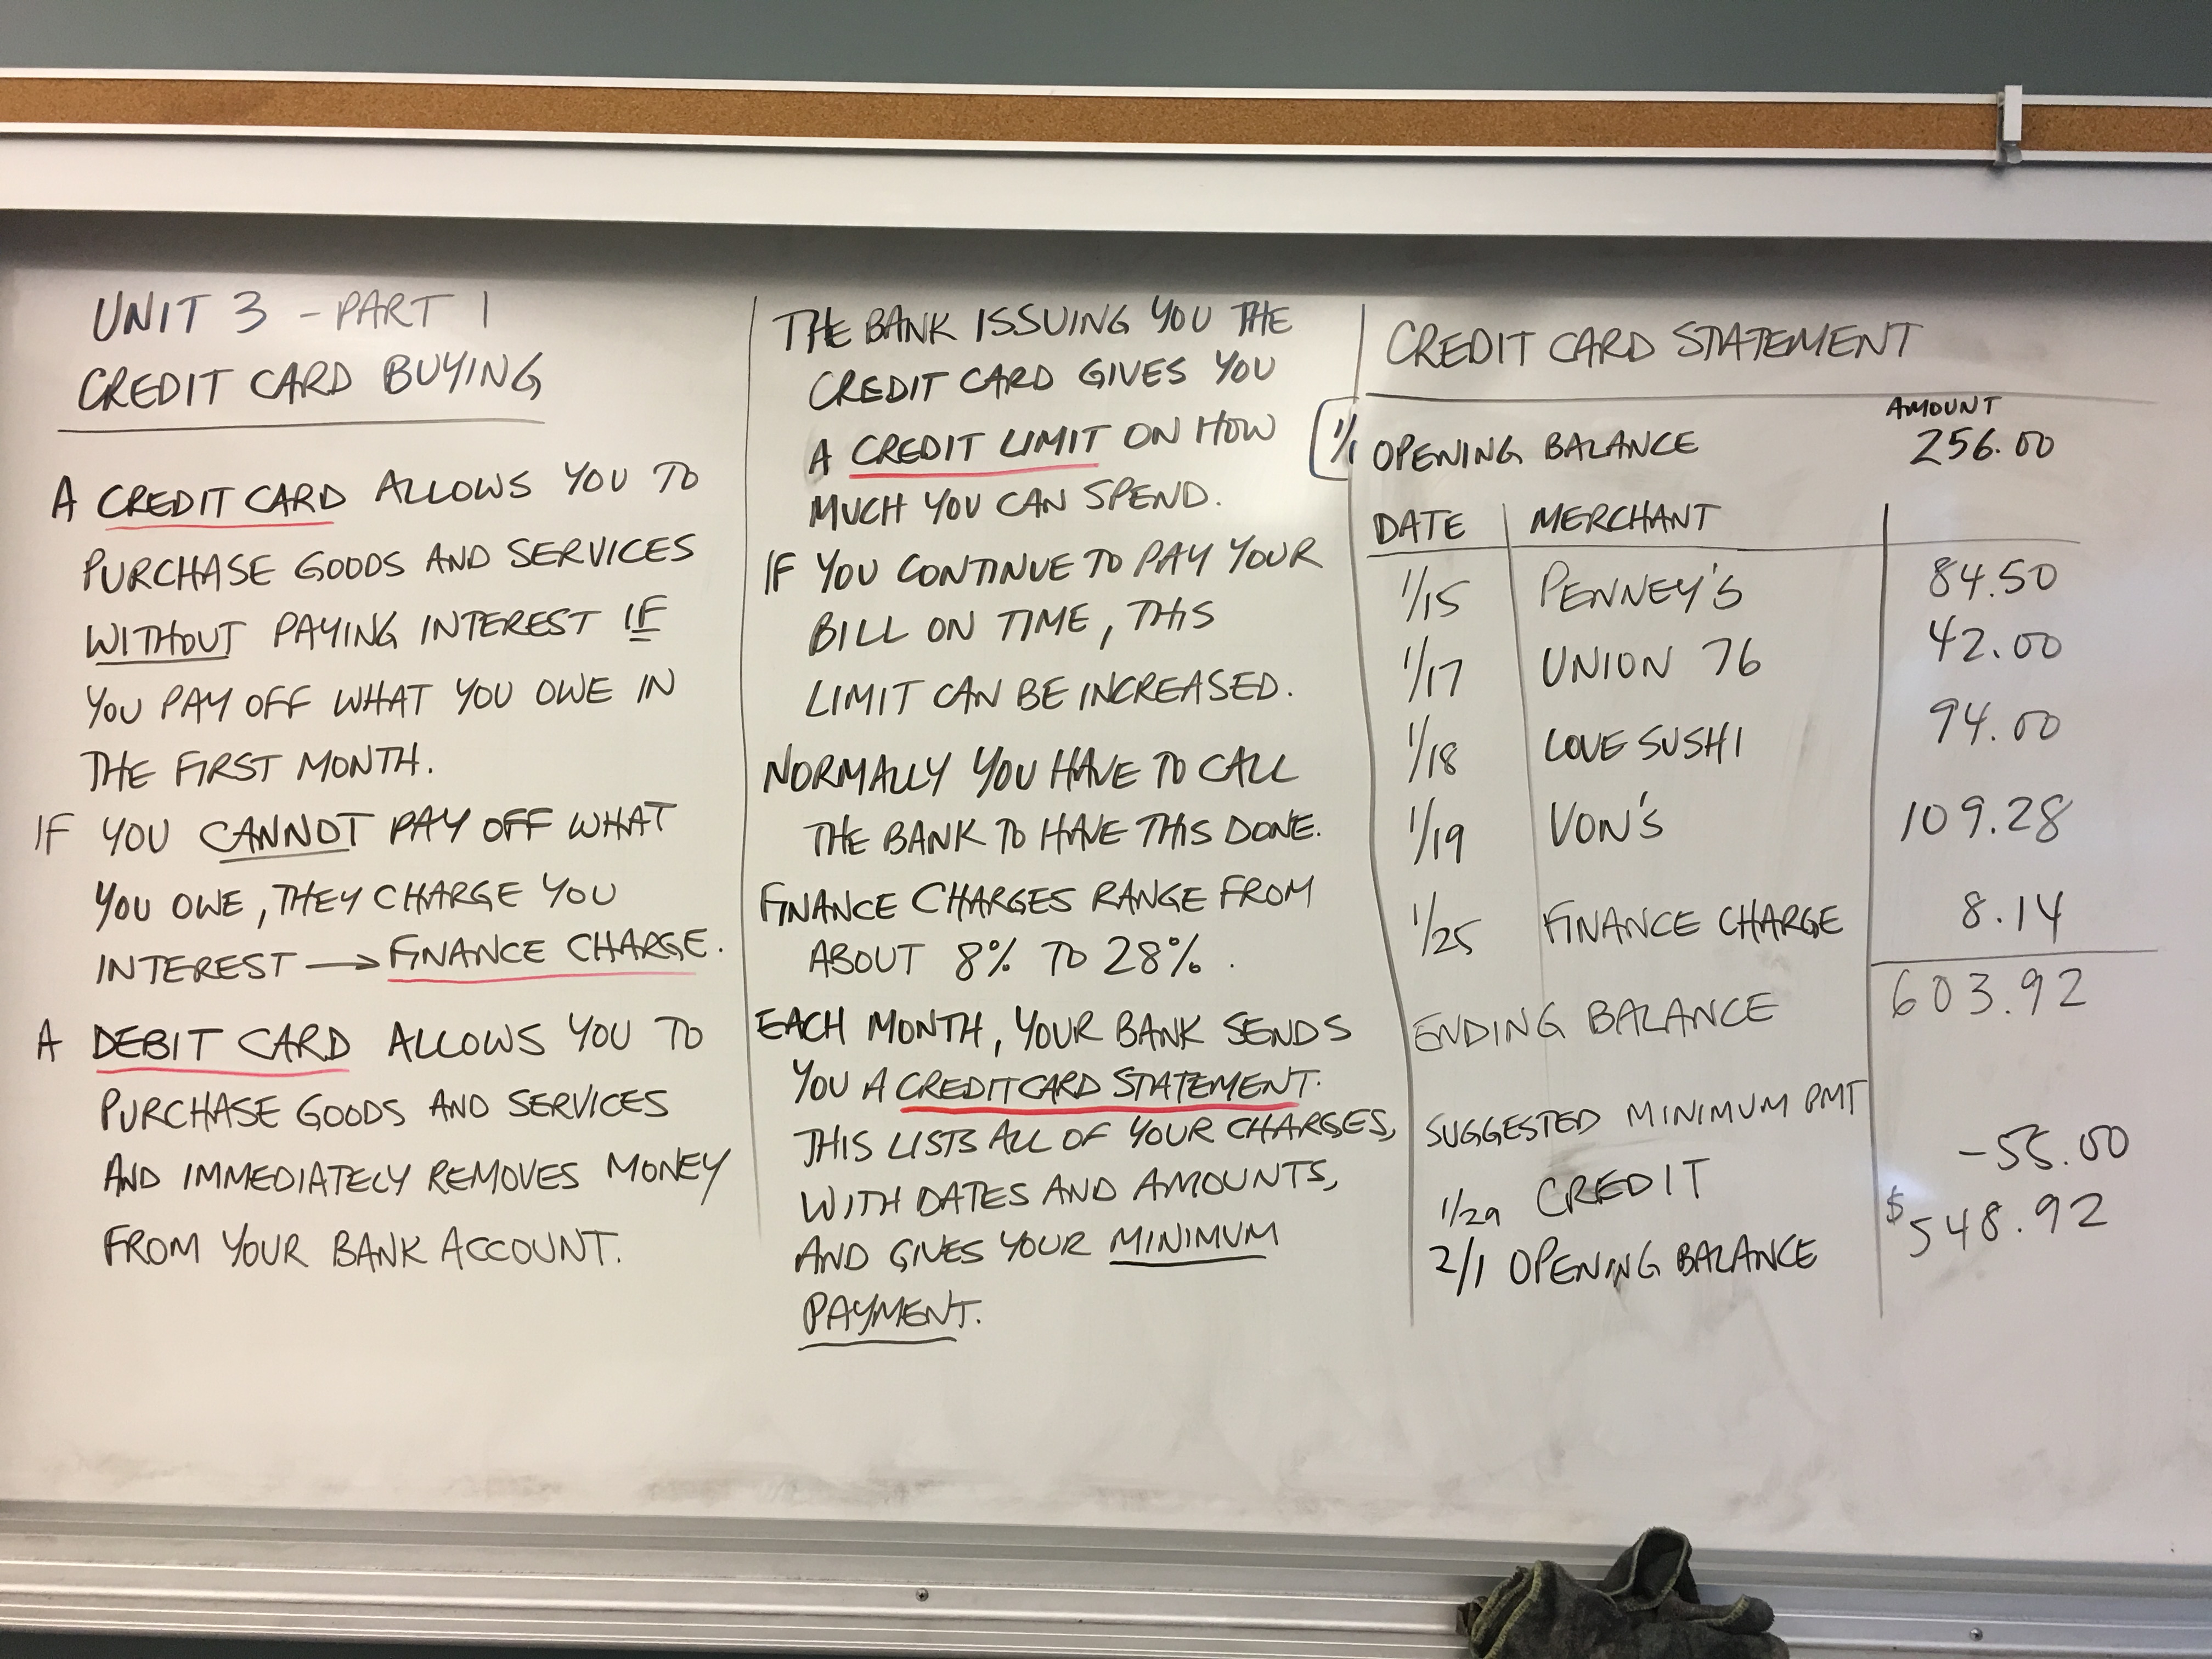 UNIT 3 - PART 1
CREDIT CARD BUYING
A CREDIT CARD ALLOWS YOU TO
PURCHASE GOODS AND SERVICES
WITHOUT PAYING INTEREST IF
YOU PAY OFF WHAT YOU OWE IN
THE FIRST MONTH.
IF YOU CANNOT PAY OFF WHAT
YOU OWE, THEY CHARGE YOU
INTEREST → FINANCE CHARGE.
A DEBIT CARD ALLOWS YOU TO
PURCHASE GOODS AND SERVICES
AND IMMEDIATELY REMOVES MONEY
FROM YOUR BANK ACCOUNT.
THE BANK ISSUING YOU THE
CREDIT CARD GIVES YOU
A CREDIT LIMIT ON HOW
MUCH YOU CAN SPEND.
IF YOU CONTINUE TO PAY YOUR
BILL ON TIME, THIS
LIMIT CAN BE INCREASED.
NORMALLY YOU HAVE TO CALL
THE BANK TO HAVE THIS DONE.
FINANCE CHARGES RANGE FROM
ABOUT 8% TO 28%.
EACH MONTH, YOUR BANK SENDS
YOU A CREDIT CARD STATEMENT.
THIS LISTS ALL OF YOUR CHARGES,
WITH DATES AND AMOUNTS,
AND GIVES YOUR MINIMUM
PAYMENT.
CREDIT CARD STATEMENT
AMOUNT
1/1 OPENING BALANCE 256.00
DATE MERCHANT
1/15 PENNEY'S 84.50
1/17 UNION 76 42.00
1/18 LOVE SUSHI 94.00
1/19 VON'S 109.28
1/25 FINANCE CHARGE 8.14
ENDING BALANCE 603.92
SUGGESTED MINIMUM PMT
1/29 CREDIT -55.00
2/1 OPENING BALANCE $548.92